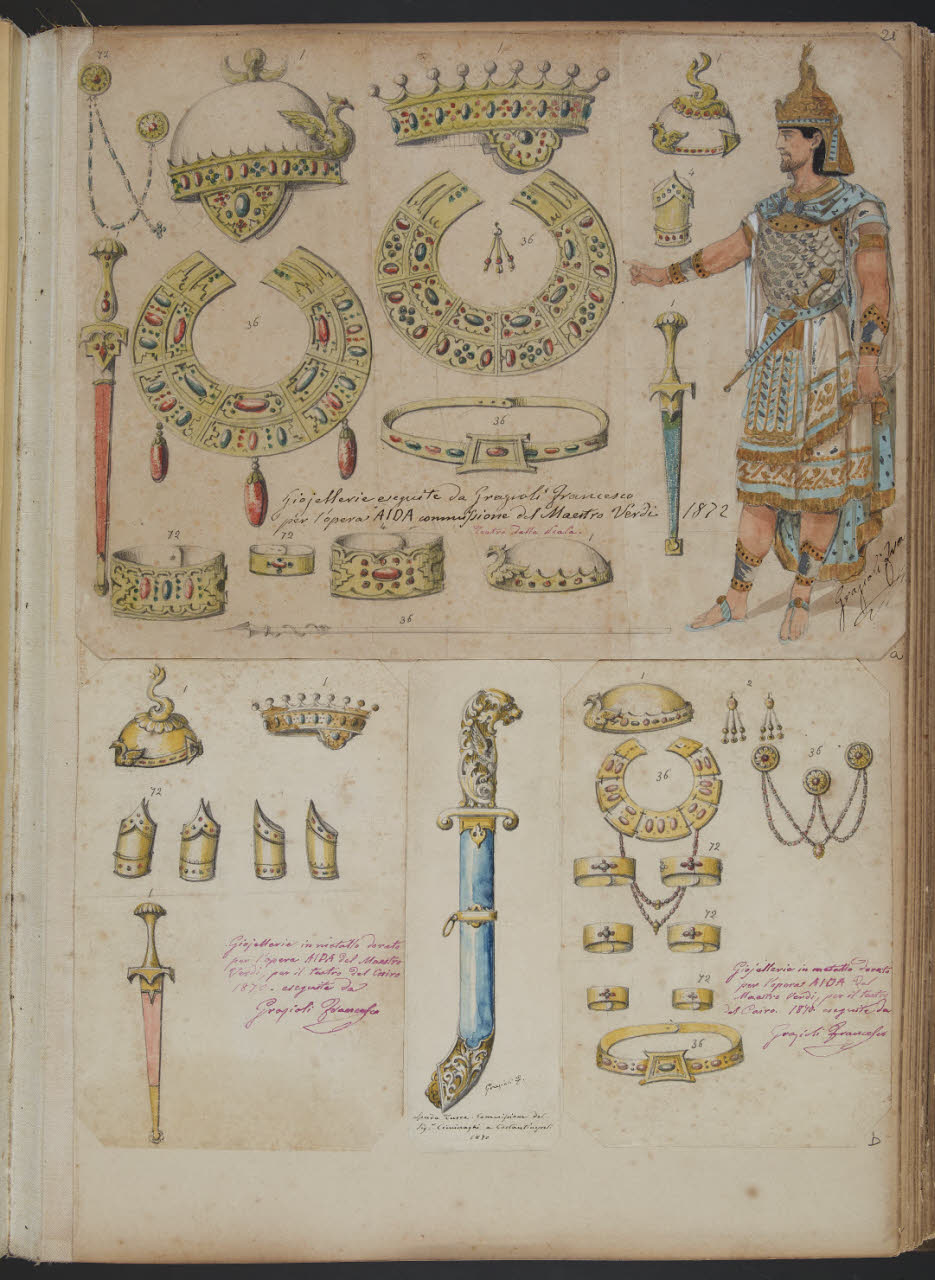 21
72
1
1
1
4
36
36
1
36
Giojellerie eseguite da Grazioli Francesco
per l'opera AIDA commissione del Maestro Verdi 1872
Teatro della Scala.
72
72
1
36
Grazioli
a
1
1
72
1
Giojellerie in metallo dorato
per l'opera AIDA del Maestro
Verdi, per il teatro del Cairo
1870 - eseguite da
Grazioli Francesco
Grazioli F.
Commissione del
Sig.r a Costantinopoli
1870
1
2
36
36
72
72
72
36
Giojellerie in metallo dorato
per l'opera AIDA del
Maestro Verdi, per il teatro
del Cairo. 1870 eseguite da
Grazioli Francesco
b